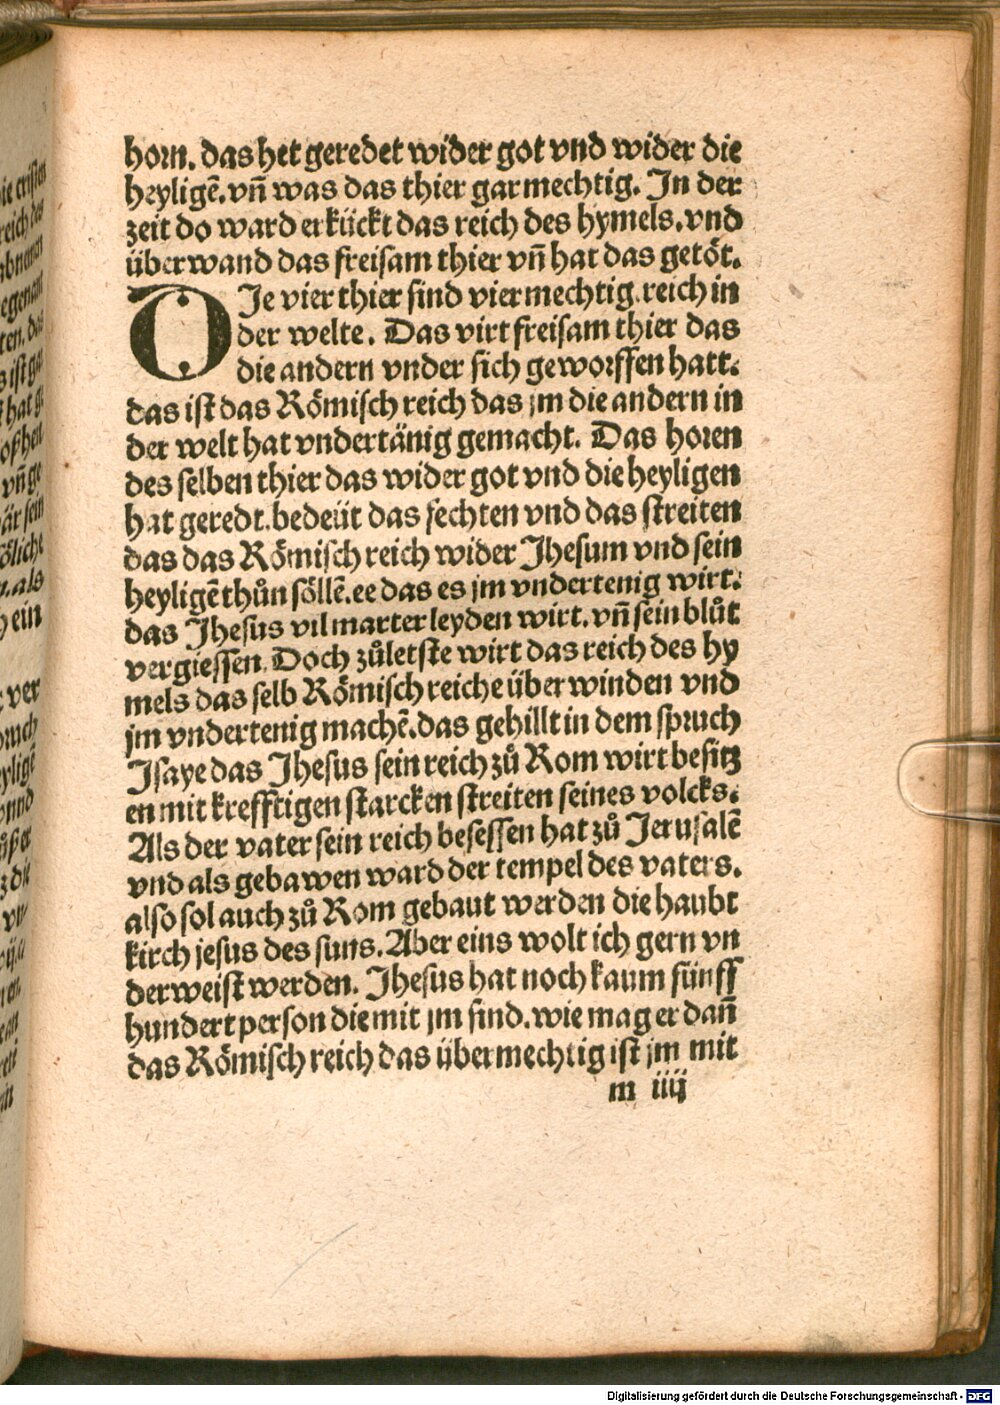 horn. das het geredet wider got vnd wider die
heyligē. vn̄ was das thier gar mechtig. In der
zeit do ward erkückt das reich des hymels. vnd
überwand das freisam thier vn̄ hat das getöt.
DIe vier thier sind vier mechtig reich in
der welte. Das virt freisam thier das
die andern vnder sich geworffen hatt.
das ist das Römisch reich das jm die andern in
der welt hat vndertänig gemacht. Das horen
des selben thier das wider got vnd die heyligen
hat geredt. bedeüt das fechten vnd das streiten
das das Römisch reich wider Jhesum vnd sein
heyligē thůn söllē. ee das es jm vndertenig wirt.
das Jhesus vil marter leyden wirt. vn̄ sein blůt
vergiessen. Doch zůletste wirt das reich des hy
mels das selb Römisch reiche überwinden vnd
jm vndertenig machē. das gehillt in dem spruch
Jsaye das Jhesus sein reich zů Rom wirt besitz
en mit krefftigen starcken streiten seines volcks.
Als der vater sein reich besessen hat zů Jerusalē
vnd als gebawen ward der tempel des vaters.
also sol auch zů Rom gebaut werden die haubt
kirch jesus des suns. Aber eins wolt ich gern vn
derweist werden. Jhesus hat noch kaum fünff
hundert person die mit jm sind. wie mag er dan̄
das Römisch reich das übermechtig ist jm mit
m iiij
Digitalisierung gefördert durch die Deutsche Forschungsgemeinschaft - DFG